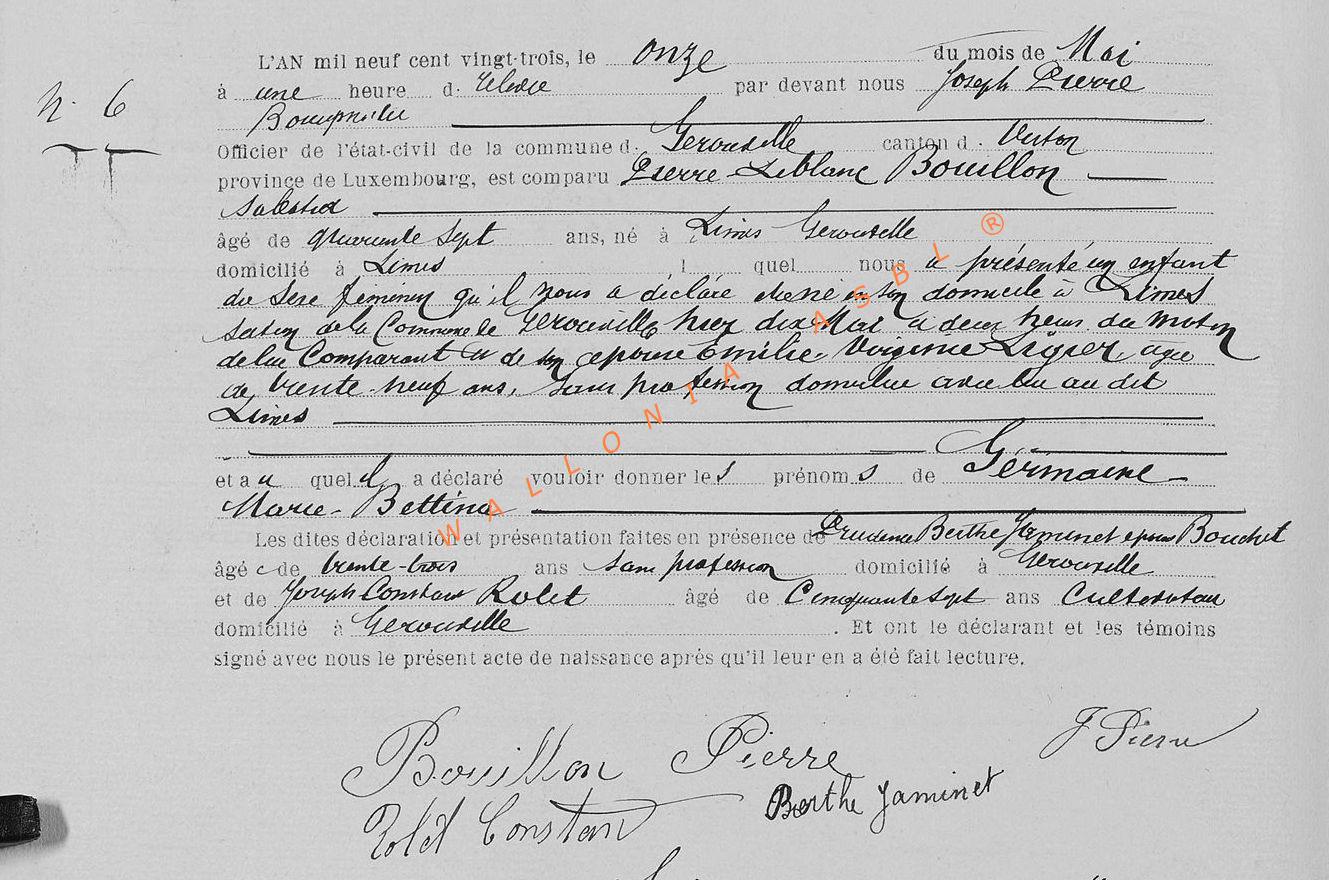 L'AN mil neuf cent vingt-trois, le onze du mois de Mai
N. 6
à une heure d. par devant nous Joseph Pierre
Bourgmestre
Officier de l'état-civil de la commune d. Gérouville canton d. Virton
province de Luxembourg, est comparu Pierre-Leblanc Bouillon
âgé de quarante sept ans, né à Limes Gérouville
domicilié à Limes l quel nous a présenté un enfant
du sexe féminin qu'il nous a déclaré être né en son domicile à Limes
section de la Commune de Gérouville hier dix Mai à deux heures du matin
de lui Comparant et de son épouse Emilie-Virginie Ligier, âgée
de trente-neuf ans, sans profession domiciliée avec lui au dit
Limes
et a u quel il a déclaré vouloir donner les prénoms de Germaine-
Marie-Bettina
Les dites déclaration et présentation faites en présence de Prudence Berthe Jaminet épouse Bouchet
âgé e de trente-trois ans sans profession domicilié à Gérouville
et de Joseph Constant Rolet âgé de Cinquante sept ans Cultivateur
domicilié à Gérouville. Et ont le déclarant et les témoins
signé avec nous le présent acte de naissance après qu'il leur en a été fait lecture.
Bouillon Pierre J Pierre
Rolet Constant Berthe Jaminet
WALLONIA ASBL ®